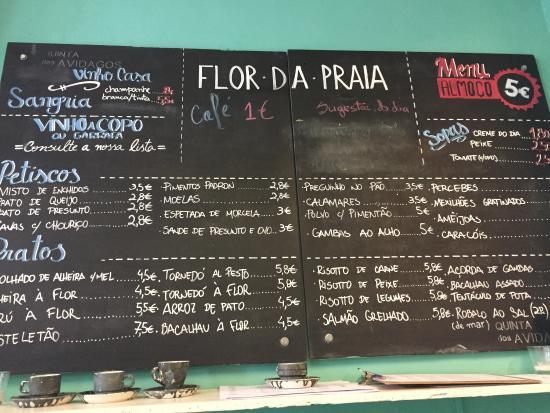 QUINTA
dos AVIDAGOS
Vinho Casa
champanhe
branca/tinta
Sangria
VINHO A COPO
OU GARRAFA
= Consulte a nossa lista =
FLOR · DA · PRAIA
Café 1€
Sugestão do dia
Menu
ALMOÇO 5€
Sopas
CREME DO DIA
PEIXE
TOMATE
Petiscos
MISTO DE ENCHIDOS 3,5€
PRATO DE QUEIJO 2,8€
PRATO DE PRESUNTO 2,8€
FAVAS C/ CHOURIÇO 2,8€
PIMENTOS PADRON 2,8€
MOELAS 2,8€
ESPETADA DE MORCELA 3€
SANDE DE PRESUNTO E OVO 3€
PREGUINHO NO PÃO 3,5€
CALAMARES 3,5€
POLVO C/ PIMENTÃO 5€
GAMBAS AO ALHO 5€
PERCEBES
MEXILHÕES GRATINADOS
AMÊIJOAS
CARACÓIS
Pratos
FOLHADO DE ALHEIRA c/MEL 4,5€
ALHEIRA À FLOR 4,5€
PERÚ À FLOR 5,5€
COSTELETÃO 7,5€
TORNEDÓ AL PESTO 5,8€
TORNEDÓ À FLOR 5,8€
ARROZ DE PATO 4,5€
BACALHAU À FLOR 4,5€
RISOTTO DE CARNE 5,8€
RISOTTO DE PEIXE 5,8€
RISOTTO DE LEGUMES 5,8€
SALMÃO GRELHADO 5,8€
AÇORDA DE GAMBAS
BACALHAU ASSADO
TENTÁCULO DE POTA
ROBALO AO SAL
(de mar)
QUINTA
dos AVIDAGOS